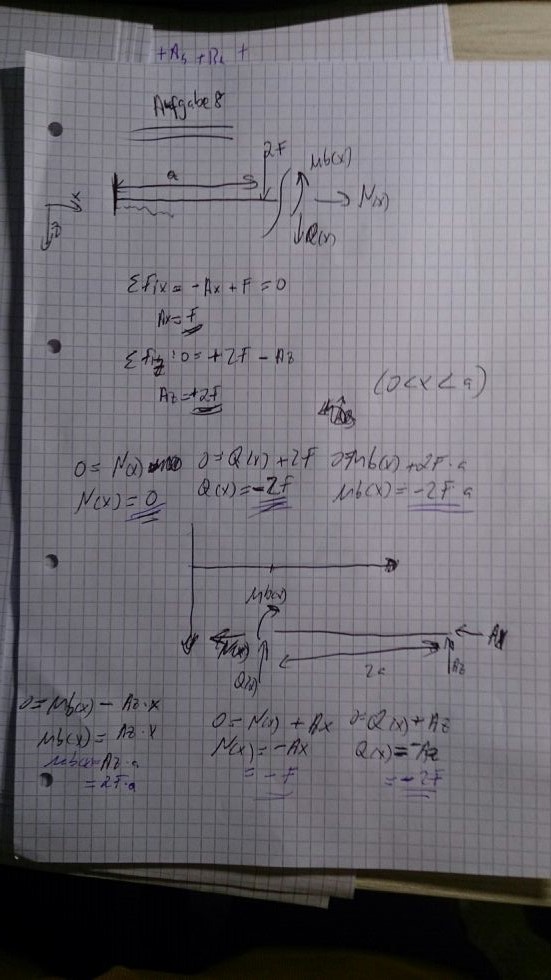 Aufgabe 8
a
2F
Mb(x)
N(x)
Q(x)
x
z
ΣFix = -Ax + F = 0
Ax = F
ΣFiz: 0 = +2F - Az
Az = +2F
(0<x<a)
0 = N(x)
N(x) = 0
0 = Q(x) + 2F
Q(x) = -2F
0 = Mb(x) + 2F·a
Mb(x) = -2F·a
Mb(x)
N(x)
Q(x)
2a
Ax
Az
0 = Mb(x) - Az·x
Mb(x) = Az·x
Mb(x) = Az·a
= 2F·a
0 = N(x) + Ax
N(x) = -Ax
= -F
0 = Q(x) + Az
Q(x) = -Az
= -2F